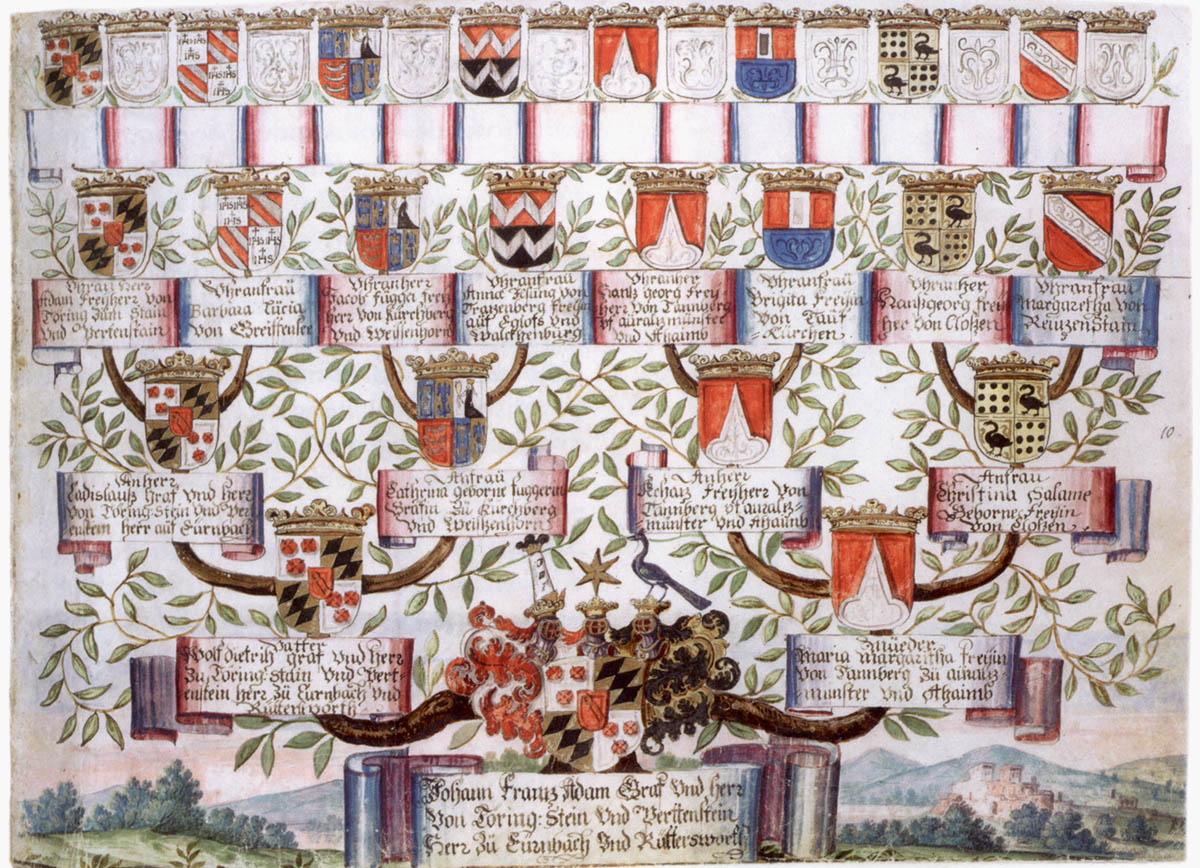 Uhran herz
Adam Freÿherz von
Toring zum Stain
Und Pertenstain
Uhranfraü
Barbara Lucia
Von Greiffensee
Uhranherz
Jacob fugger freÿ
herz von Kürchberg
Und Weissenhorn
Uhranfraü
Anna von
Tratzenberg freÿin
auf Eglofs Und
Uhranherz
Hantz georg freÿ
herz von Tannberg
Vf auraltzmünster
Und Athaimb
Uhranfraü
Brigita freÿin
Von Tauf
Kürchen.
Uhranherz
Hantzgeorg freÿ
herz von Cloßen
Uhranfraü
Margaretha von
10
Anherz
Ladislauß Graf Und herz
Von Toring: Stein Und Per
tenstein herz auf Eürnbach
Anfraü
Cathrina geborne fuggerin
Gräfin Zu Kürchberg
Und Weissenhorn
Anherz
Freÿherz Von
Tannberg Vf auraltz
münster Und Athaimb
Anfraü
Christina Salame
Geborne Freÿin
Von Cloßen
Vatter
Wolf dietrich graf Und herz
Zu Toring: Stain Und Pert
enstein herz Zu Eürnbach Und
Rüttersworth
Müeder
Maria Margaritha freÿin
Von Tannberg Zu auraltz
münster Und Athaimb
Johann Frantz Adam Graf Und herz
Von Toring: Stein Und Perttenstein
Herz Zu Eürnbach Und Rüttersworth